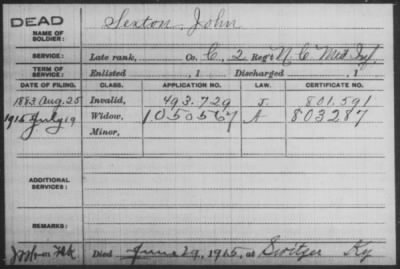 DEAD
NAME OF SOLDIER: Sexton, John
SERVICE: Late rank, Co. C, 2 Reg't N C Mtd Inf.
TERM OF SERVICE: Enlisted , 1 Discharged , 1
DATE OF FILING. CLASS. APPLICATION NO. LAW. CERTIFICATE NO.
1883 Aug. 25 Invalid, 493.729 J. 801.591
1915 July 19 Widow, 1050567 A 803287
Minor,
ADDITIONAL SERVICES:
REMARKS:
Died June 29, 1915, at Switzer Ky